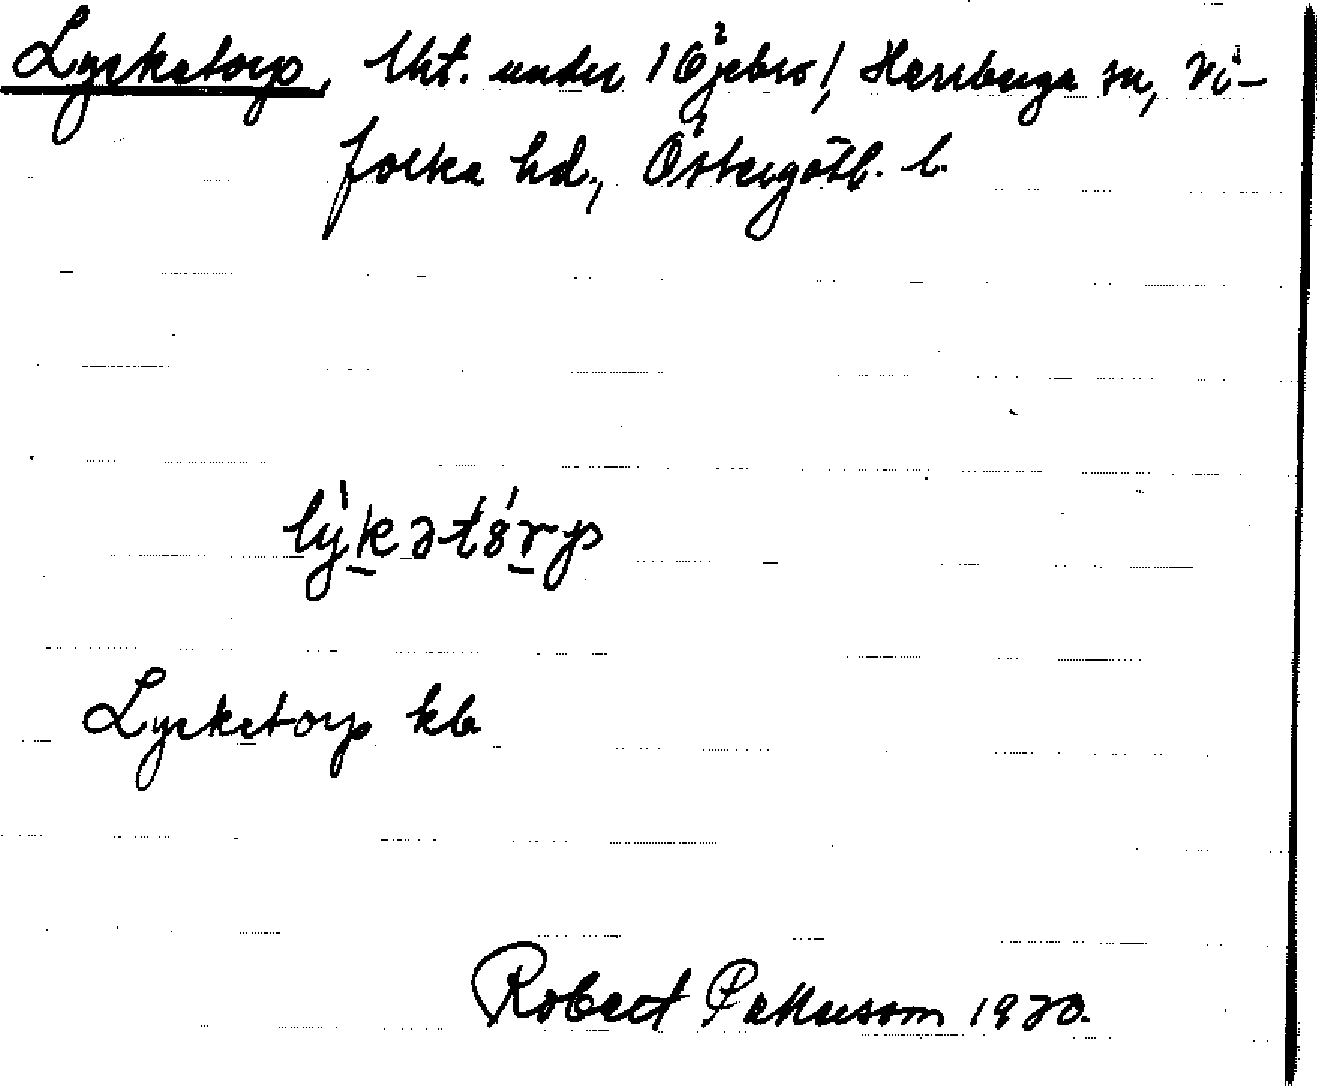 Lycketorp, lht. under 1 Öjebro, Herrberga sn, Vi-
folka hd., Östergötl. l.
lýkətórp
Lycketorp kb
Robert Pettersson 1920.